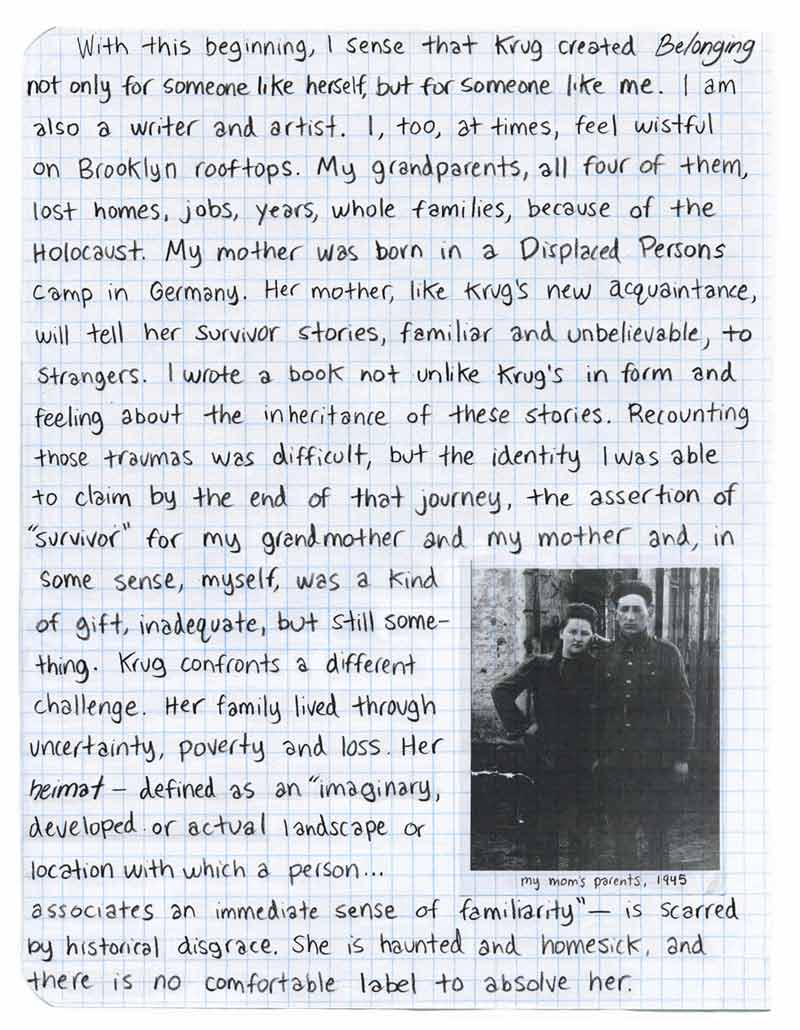 With this beginning, I sense that Krug created Belonging
not only for someone like herself, but for someone like me. I am
also a writer and artist. I, too, at times, feel wistful
on Brooklyn rooftops. My grandparents, all four of them,
lost homes, jobs, years, whole families, because of the
Holocaust. My mother was born in a Displaced Persons
Camp in Germany. Her mother, like Krug's new acquaintance,
will tell her survivor stories, familiar and unbelievable, to
strangers. I wrote a book not unlike Krug's in form and
feeling about the inheritance of these stories. Recounting
those traumas was difficult, but the identity I was able
to claim by the end of that journey, the assertion of
"survivor" for my grandmother and my mother and, in
some sense, myself, was a kind
of gift, inadequate, but still some-
thing. Krug confronts a different
challenge. Her family lived through
uncertainty, poverty and loss. Her
heimat – defined as an "imaginary,
developed or actual landscape or
location with which a person...
my mom's parents, 1945
associates an immediate sense of familiarity" – is scarred
by historical disgrace. She is haunted and homesick, and
there is no comfortable label to absolve her.